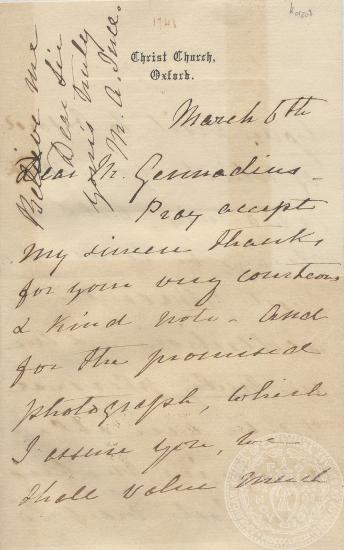 1741
Christ Church,
Oxford.
March 6th
Dear Mr. Gennadius
Pray accept
my sincere thanks
for your very courteous
& kind note - and
for the promised
photograph, which
I assure you, we
shall value much
Believe me
Dear Sir
yours truly
M. A.